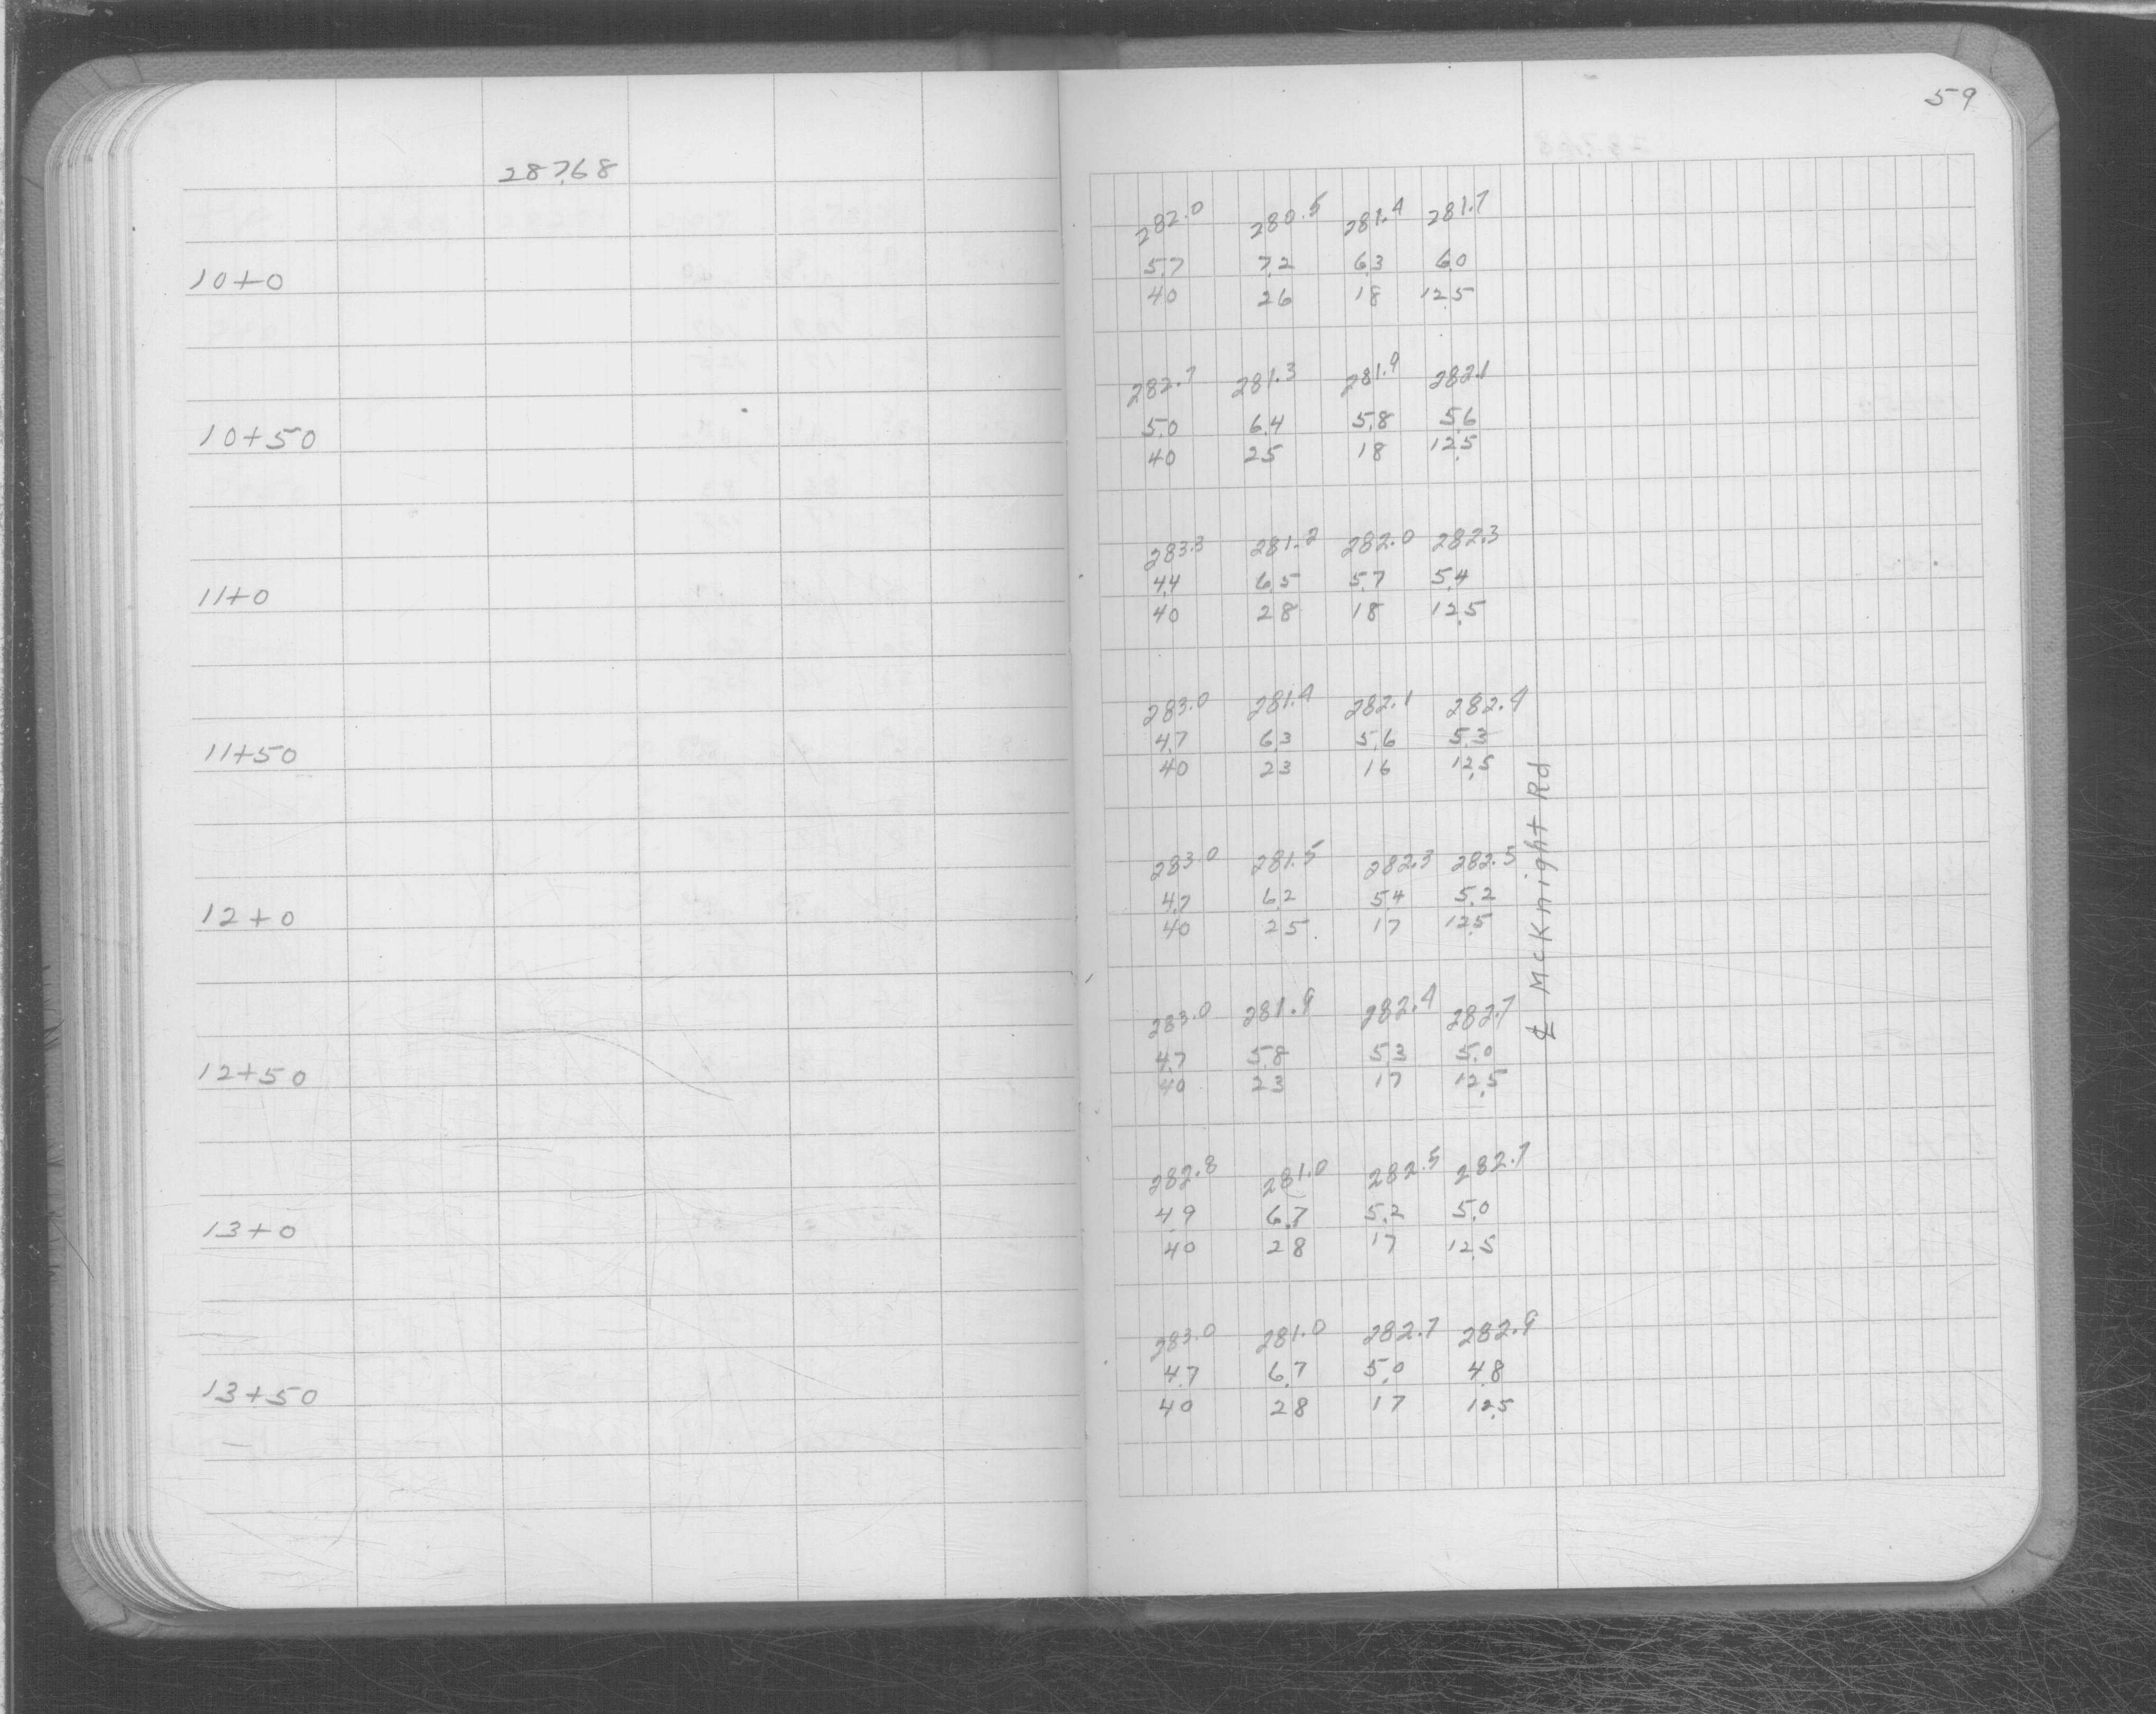 59
287.68
282.0 280.5 281.4 281.7
10+0 5.7 7.2 6.3 6.0
40 26 18 12.5
282.7 281.3 281.9 282.1
10+50 5.0 6.4 5.8 5.6
40 25 18 12.5
283.3 281.2 282.0 282.3
11+0 4.4 6.5 5.7 5.4
40 28 18 12.5
283.0 281.4 282.1 282.4
11+50 4.7 6.3 5.6 5.3
40 23 16 12.5
283.0 281.5 282.3 282.5
12+0 4.7 6.2 5.4 5.2
40 25 17 12.5
283.0 281.9 282.4 282.7
12+50 4.7 5.8 5.3 5.0
40 23 17 12.5
282.8 281.0 282.5 282.7
13+0 4.9 6.7 5.2 5.0
40 28 17 12.5
283.0 281.0 282.7 282.9
13+50 4.7 6.7 5.0 4.8
40 28 17 12.5
℄ McKnight Rd